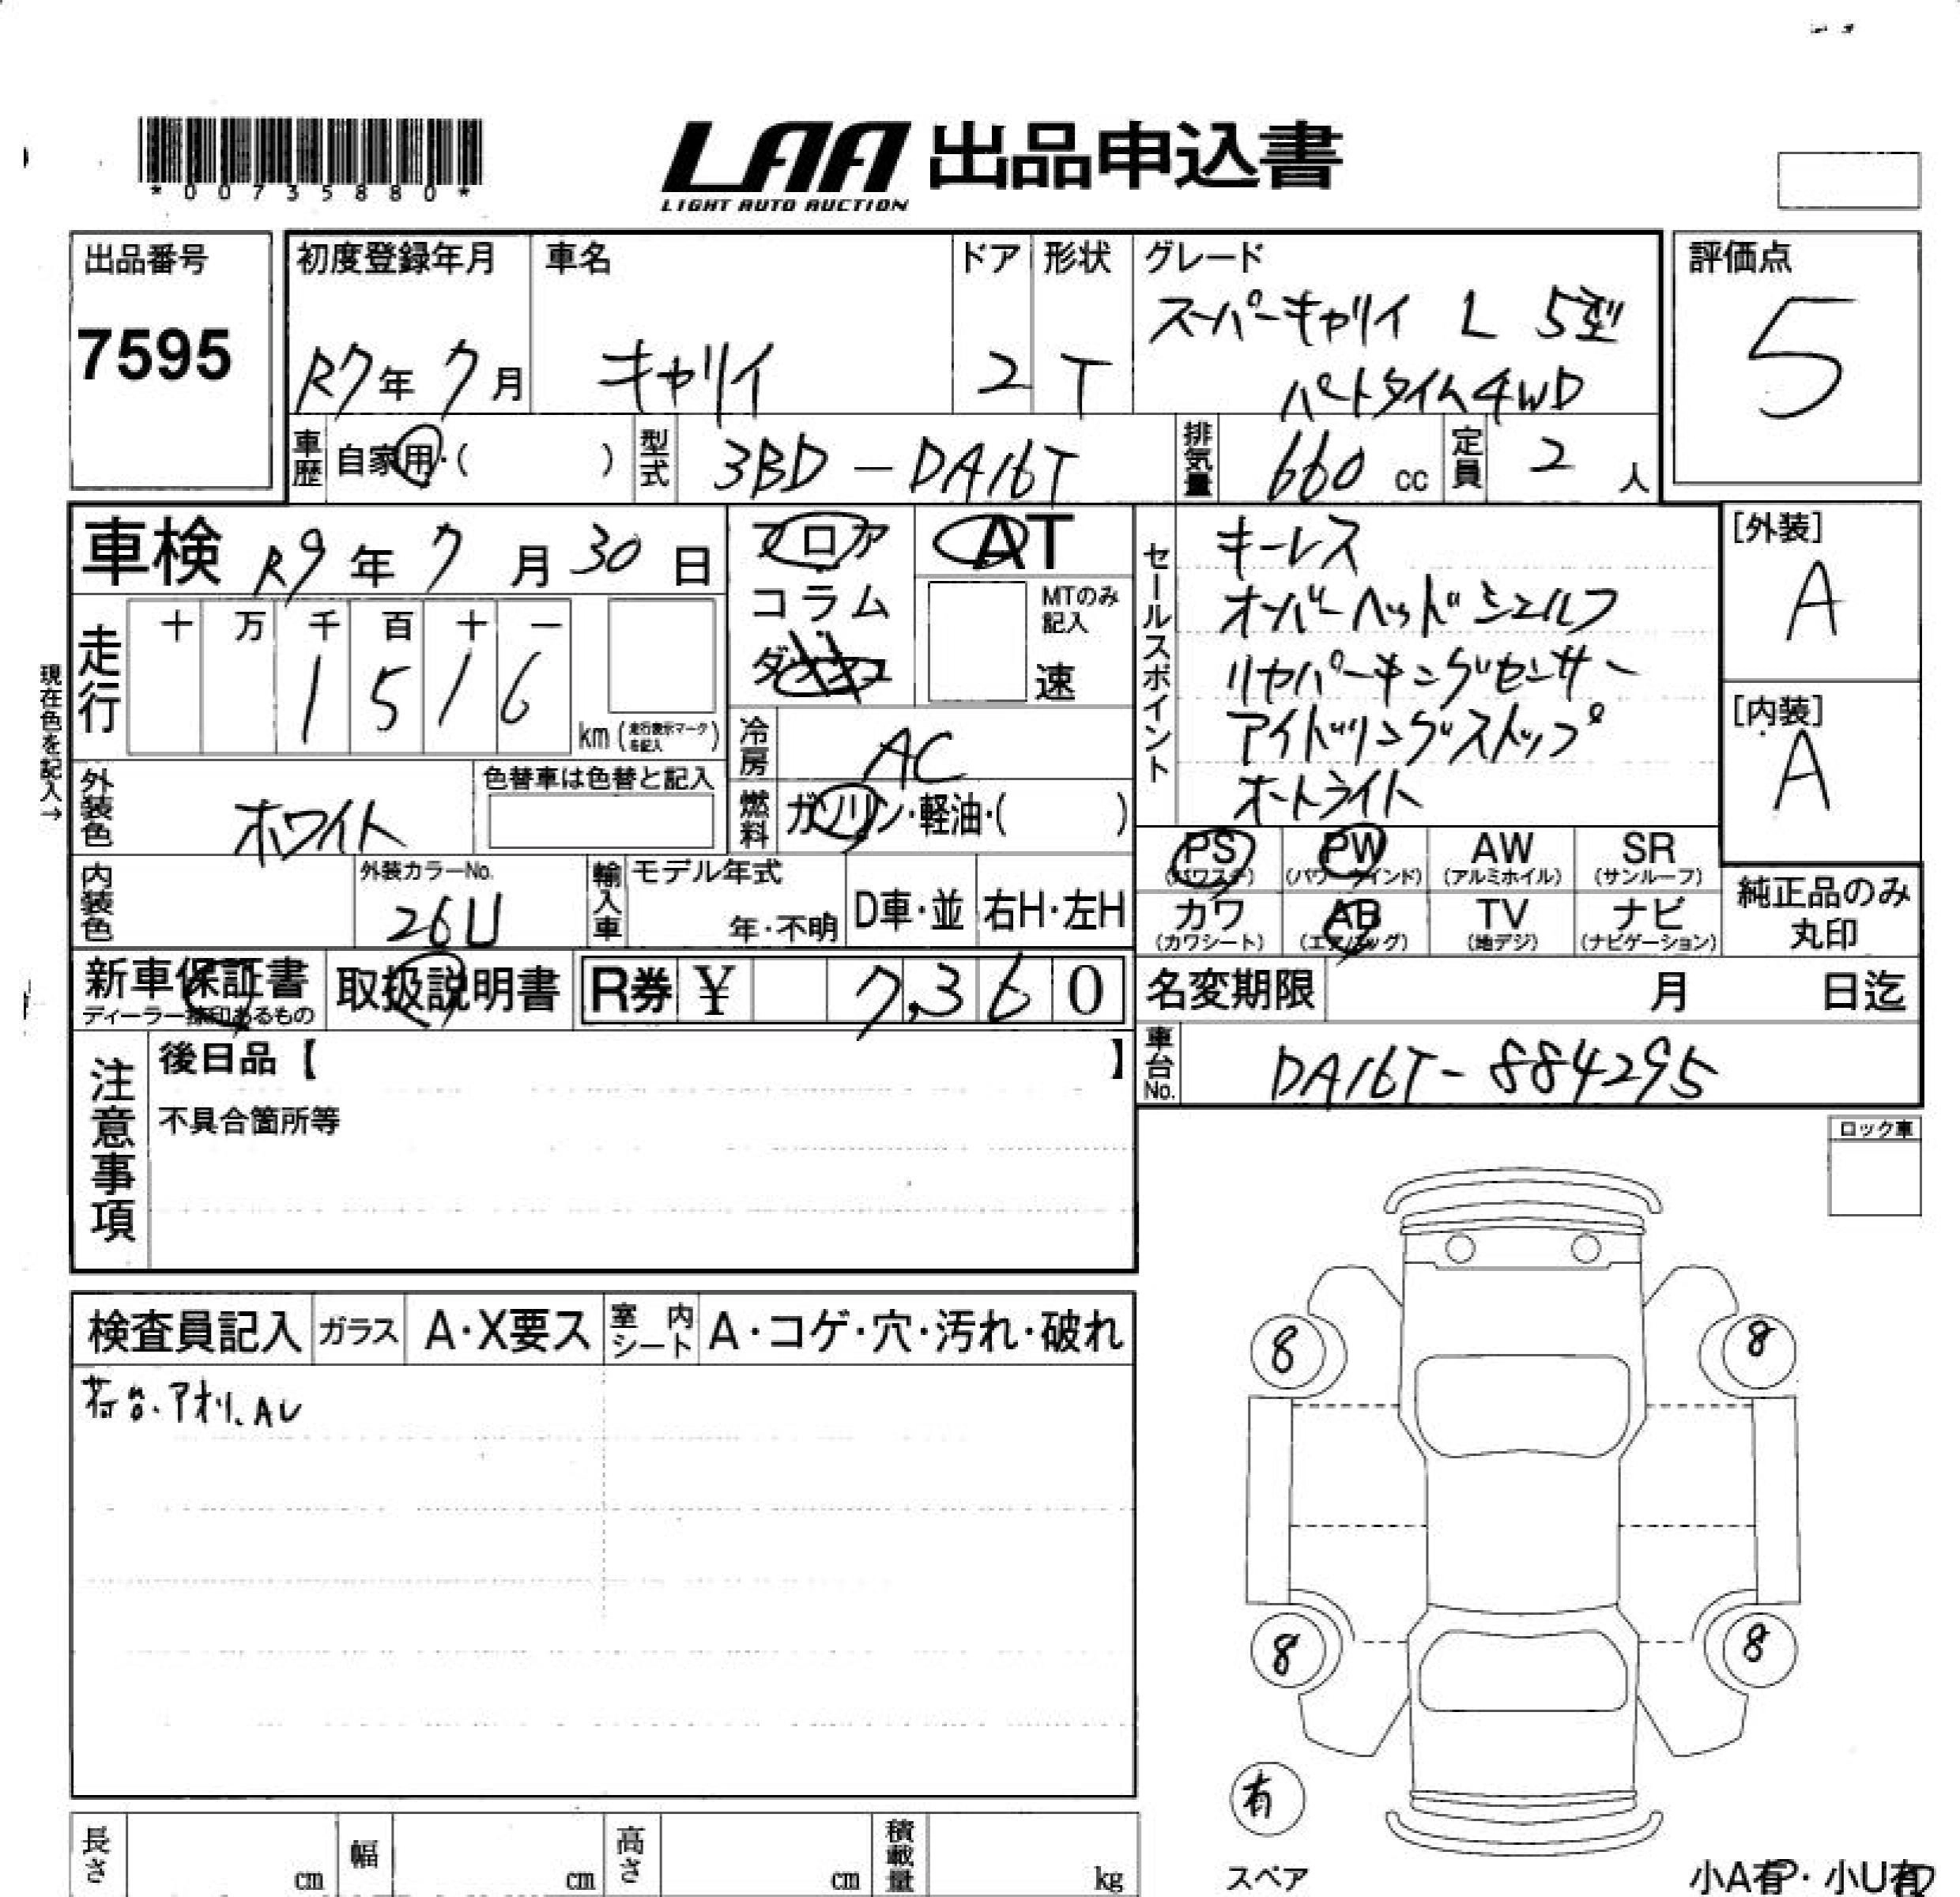 *00735880*
LAA 出品申込書
LIGHT AUTO AUCTION
出品番号
7595
初度登録年月
R7年7月
車名
キャリイ
ドア
2
形状
T
グレード
スーパーキャリイ L 5型
パートタイム4WD
評価点
5
車歴
自家用・( )
型式
3BD-DA16T
排気量
660 cc
定員
2 人
車検 R9年7月30日
フロア
コラム
AT
MTのみ
記入
速
セールスポイント
キーレス
オーバーヘッドシェルフ
リヤパーキングセンサー
アイドリングストップ
オートライト
[外装]
A
[内装]
A
現在色を記入→
走行
十 万 千 百 十 一
1 5 1 6
km (走行表示マークを記入)
冷房
AC
燃料
ガソリン・軽油・( )
外装色
ホワイト
色替車は色替と記入
PS
(パワステ)
PW
(パワーウインド)
AW
(アルミホイル)
SR
(サンルーフ)
カワ
(カワシート)
AB
(エアバッグ)
TV
(地デジ)
ナビ
(ナビゲーション)
純正品のみ
丸印
内装色
外装カラーNo.
26U
輸入車
モデル年式
年・不明
D車・並
右H・左H
新車保証書
ディーラー捺印あるもの
取扱説明書
R券 ¥ 7,360
名変期限 月 日迄
車台No.
DA16T-884295
注意事項
後日品【 】
不具合箇所等
ロック車
検査員記入
ガラス
A・X要ス
室内シート
A・コゲ・穴・汚れ・破れ
荷台.アオリ.AU
8
8
8
8
有
スペア
長さ cm
幅 cm
高さ cm
積載量 kg
小A有・小U有